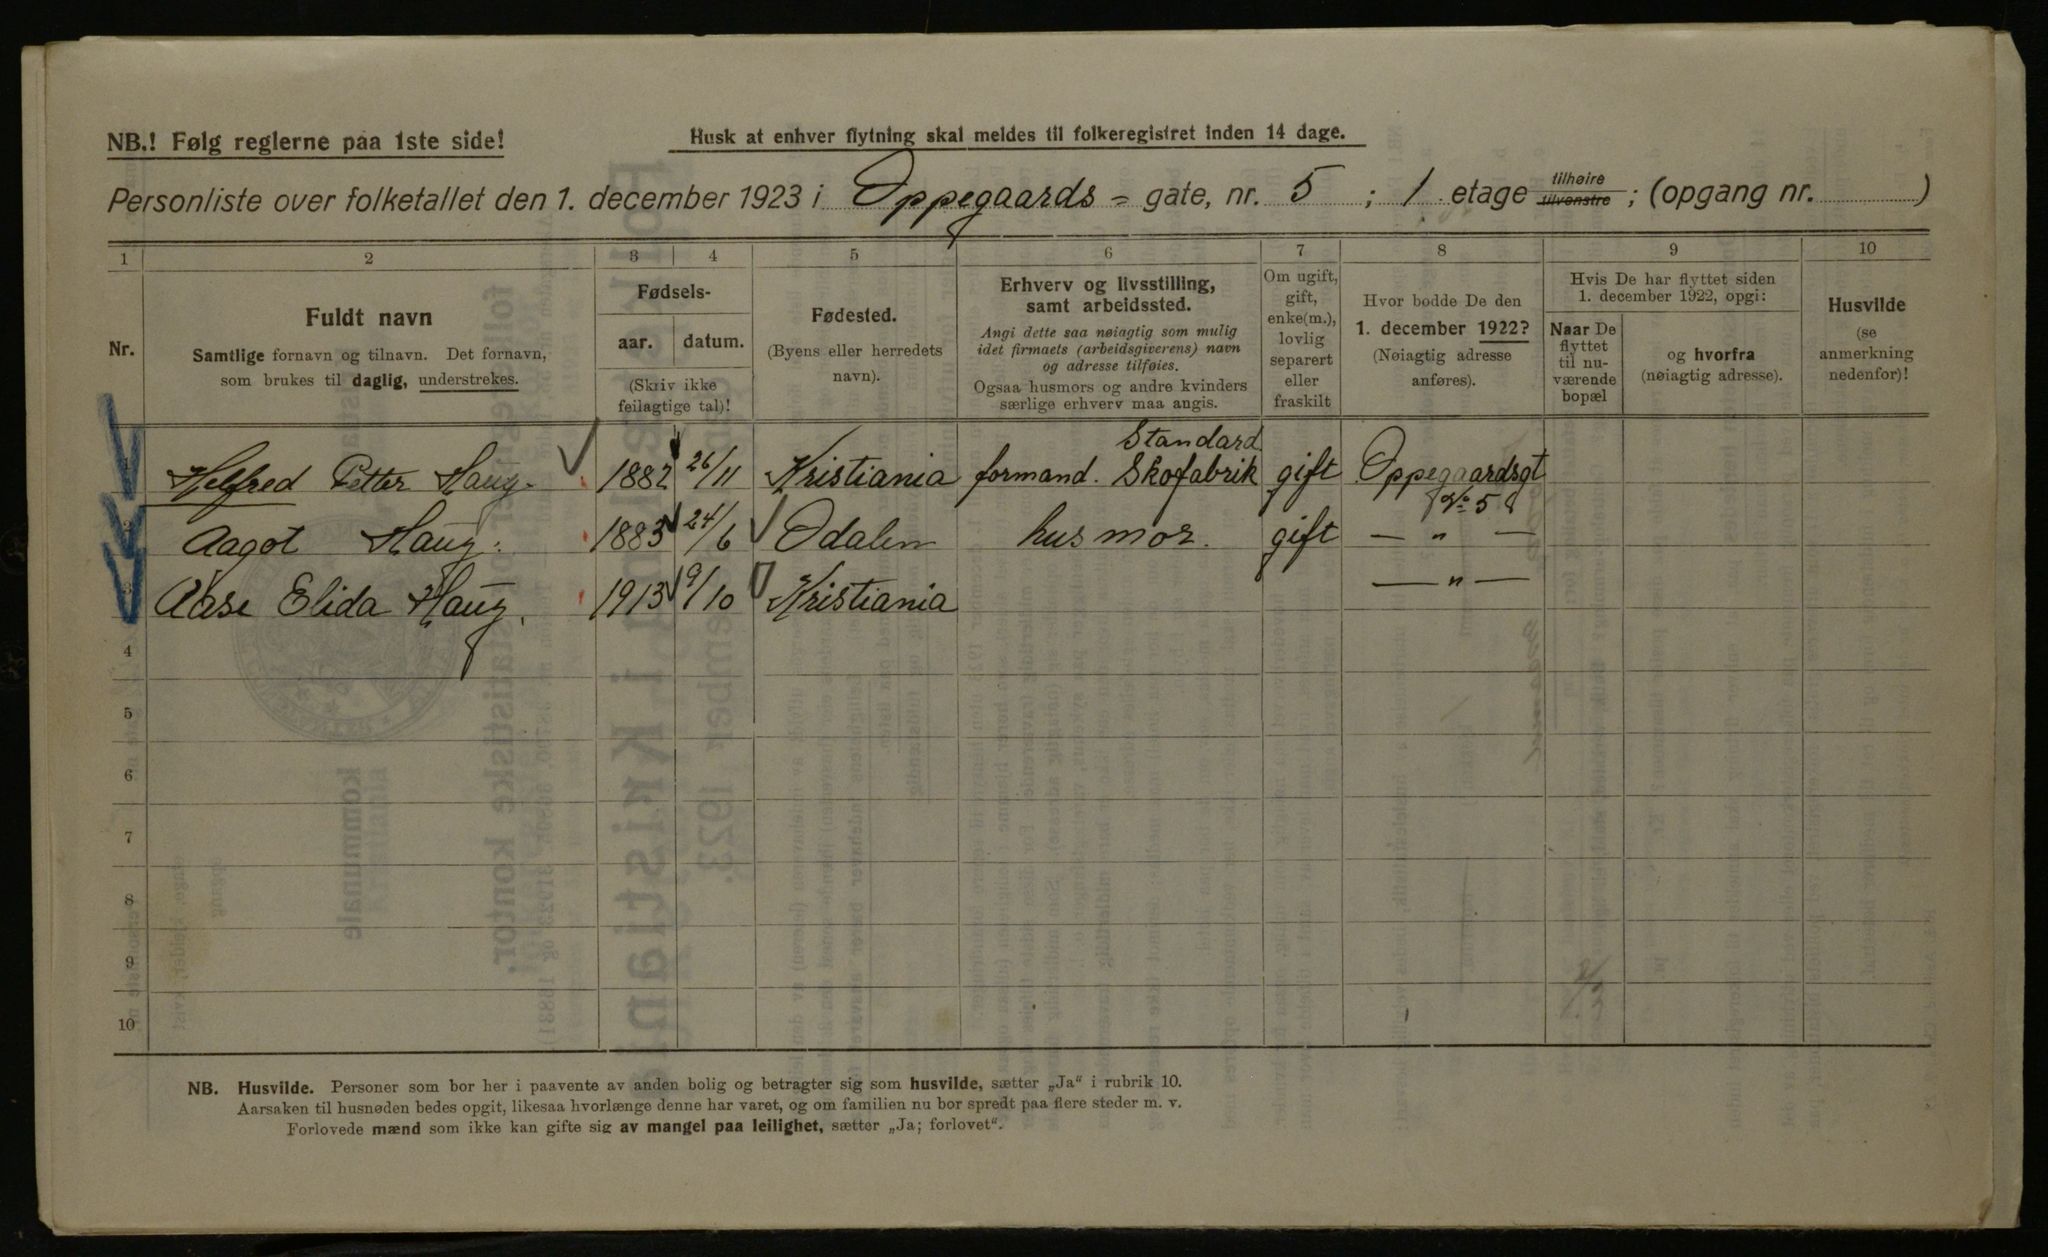 NB.! Følg reglerne paa 1ste side!
Husk at enhver flytning skal meldes til folkeregistret inden 14 dage.
Personliste over folketallet den 1. december 1923 i Oppegaards - gate, nr. 5 ; 1 etage tilhøire tilvenstre ; (opgang nr. )
1 2 3 4 5 6 7 8 9 10
Nr.
Fuldt navn
Samtlige fornavn og tilnavn. Det fornavn,
som brukes til daglig, understrekes.
Fødsels-
aar. datum.
(Skriv ikke
feilagtige tal)!
Fødested.
(Byens eller herredets
navn).
Erhverv og livsstilling,
samt arbeidssted.
Angi dette saa nøiagtig som mulig
idet firmaets (arbeidsgiverens) navn
og adresse tilføies.
Ogsaa husmors og andre kvinders
særlige erhverv maa angis.
Om ugift,
gift,
enke(m.),
lovlig
separert
eller
fraskilt
Hvor bodde De den
1. december 1922?
(Nøiagtig adresse
anføres).
Hvis De har flyttet siden
1. december 1922, opgi:
Naar De
flyttet
til nu-
værende
bopæl
og hvorfra
(nøiagtig adresse).
Husvilde
(se
anmerkning
nedenfor)!
1 Helfred Petter Haug. 1882 26/11 Kristiania formand. Standard Skofabrik gift Oppegaardsgt No 5
2 Aagot Haug. 1883 24/6 Odalen husmor. gift — " —
3 Aase Elida Haug. 1913 9/10 Kristiania — " —
4
5
6
7
8
9
10
NB. Husvilde. Personer som bor her i paavente av anden bolig og betragter sig som husvilde, sætter „Ja" i rubrik 10.
Aarsaken til husnøden bedes opgit, likesaa hvorlænge denne har varet, og om familien nu bor spredt paa flere steder m. v.
Forlovede mænd som ikke kan gifte sig av mangel paa leilighet, sætter „Ja; forlovet".